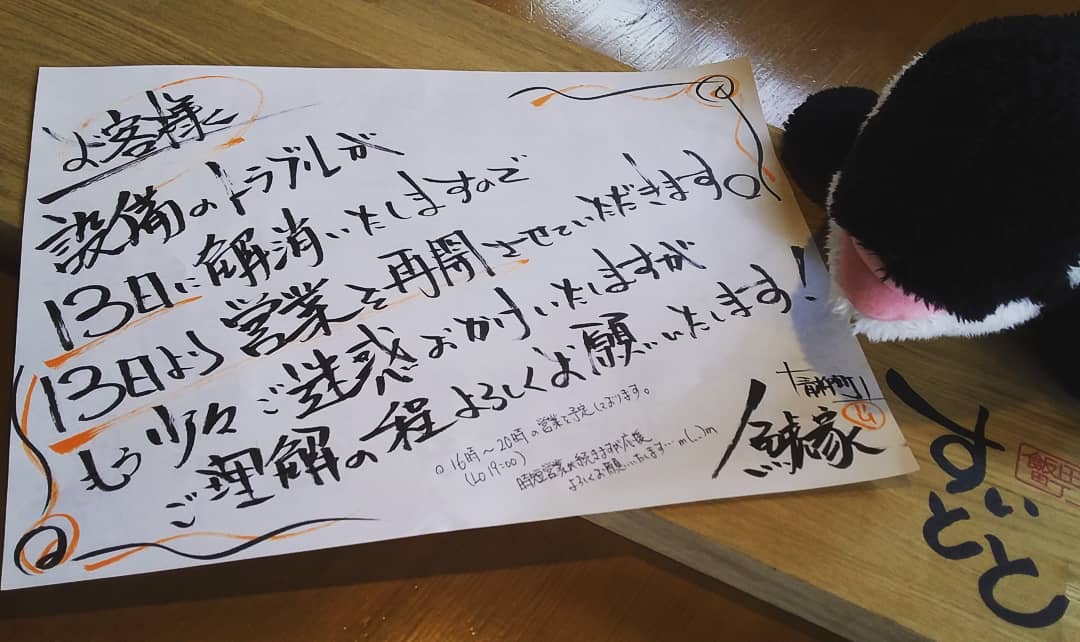 お客様へ
設備のトラブルが
13日に解消いたしますので
13日より営業を再開させていただきます。
もう少々ご迷惑おかけいたしますが
ご理解の程よろしくお願いいたします!
○16時～20時の営業を予定しております。
(LO 19:00)
時短営業が続きますが応援
よろしくお願いいたします…m(_ _)m
すいとと